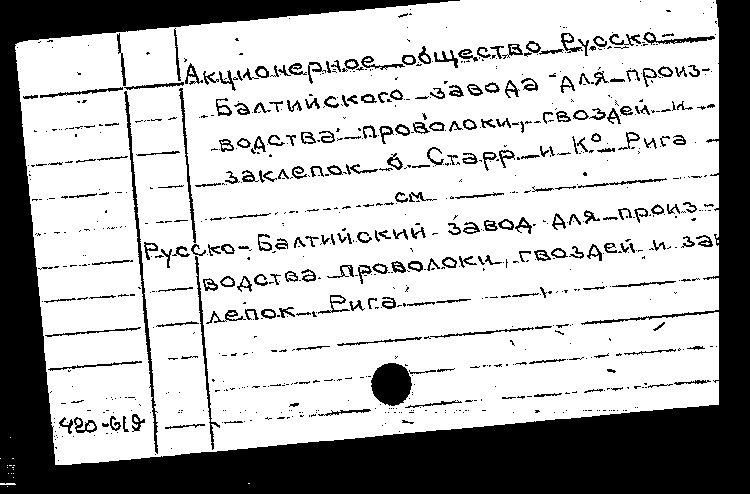 Акционерное общество Русско-
Балтийского завода для произ-
водства проволоки, гвоздей и
заклепок б. Старр и К° Рига
см
Русско-Балтийский завод для произ-
водства проволоки, гвоздей и зак
лепок, Рига